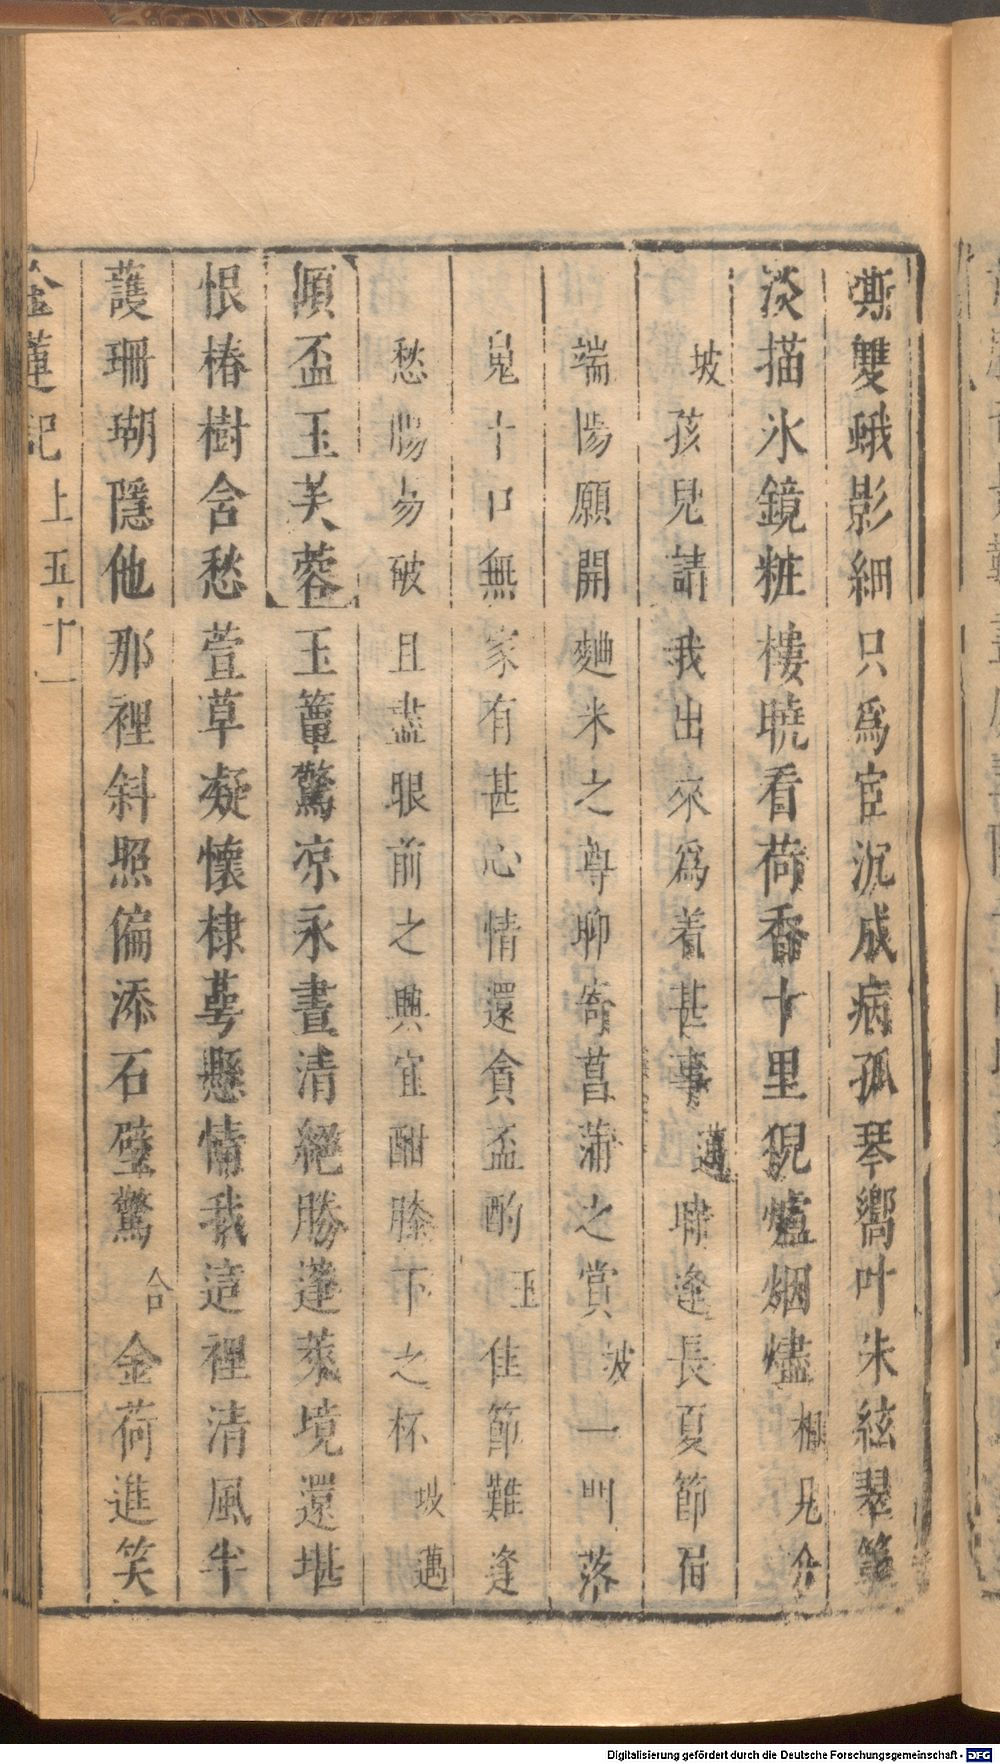 嘶雙蛾影細只爲宦沉成病孤琴嚮叶朱絃翠
淡描氷鏡粧樓曉看荷香十里猊爐烟燼相見介
坡孩兒請我出來爲着甚事邁聯逢長夏節屆
端陽願開麯米之尊聊寄菖蒲之賞坡一門落
鬼十口無家有甚心情還貪盃酌玉佳節難逢
愁腸易破且盡眼前之興宜酣膝下之杯坡邁
傾盃玉芙蓉玉簟驚凉永晝清絕勝蓬萊境還堪
恨椿樹含愁萱草凝懷棣萼懸情我這裡清風半
護珊瑚隱他那裡斜照偏添石壁驚合金荷進笑
金蓮記上五十一
Digitalisierung gefördert durch die Deutsche Forschungsgemeinschaft - DFG